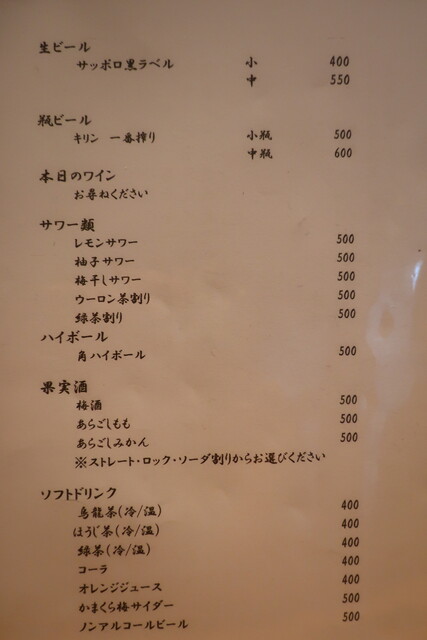 生ビール
サッポロ黒ラベル 小 400
中 550
瓶ビール
キリン 一番搾り 小瓶 500
中瓶 600
本日のワイン
お尋ねください
サワー類
レモンサワー 500
柚子サワー 500
梅干しサワー 500
ウーロン茶割り 500
緑茶割り 500
ハイボール
角ハイボール 500
果実酒
梅酒 500
あらごしもも 500
あらごしみかん 500
※ストレート・ロック・ソーダ割りからお選びください
ソフトドリンク
烏龍茶(冷/温) 400
ほうじ茶(冷/温) 400
緑茶(冷/温) 400
コーラ 400
オレンジジュース 400
かまくら梅サイダー 500
ノンアルコールビール 500